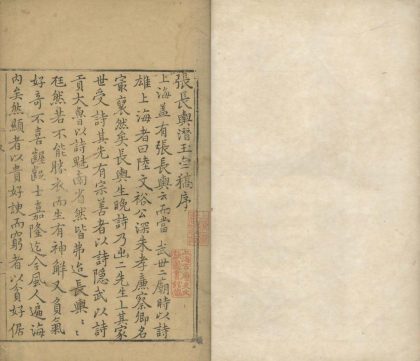 張長輿潛玉堂稿序
上海蓋有張長輿云而當武世二廟時以詩
雄上海者曰陸文裕公深朱孝廉察卿名
寂襄然矣長輿生晚詩乃出二先生上其家
世受詩其先有宗善者以詩隱武以詩
貢大魯以詩魁南省然皆弗逮長輿：
尫然若不能勝衣而生有神解又負氣
好奇不喜齷齪士嘉隆迄今風人遍海
內矣然顯者以貴好諛而窮者以貧好倨